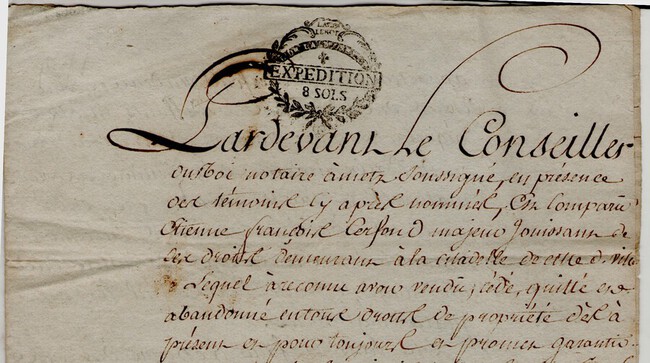 EXPEDITION
8 SOLS
Pardevant Le Conseiller
du Roi notaire à metz soussigné, en presence
des témoins cy après nommés, Est Comparu
Etienne françois Cerfond majeur Jouissant de
ses droits demeurant à la citadelle de cette d. ville
Lequel à reconnu avoir vendu, cédé, quitté et
abandonné en tous droits de propriété dès à
présent et pour toujours et promet garantir